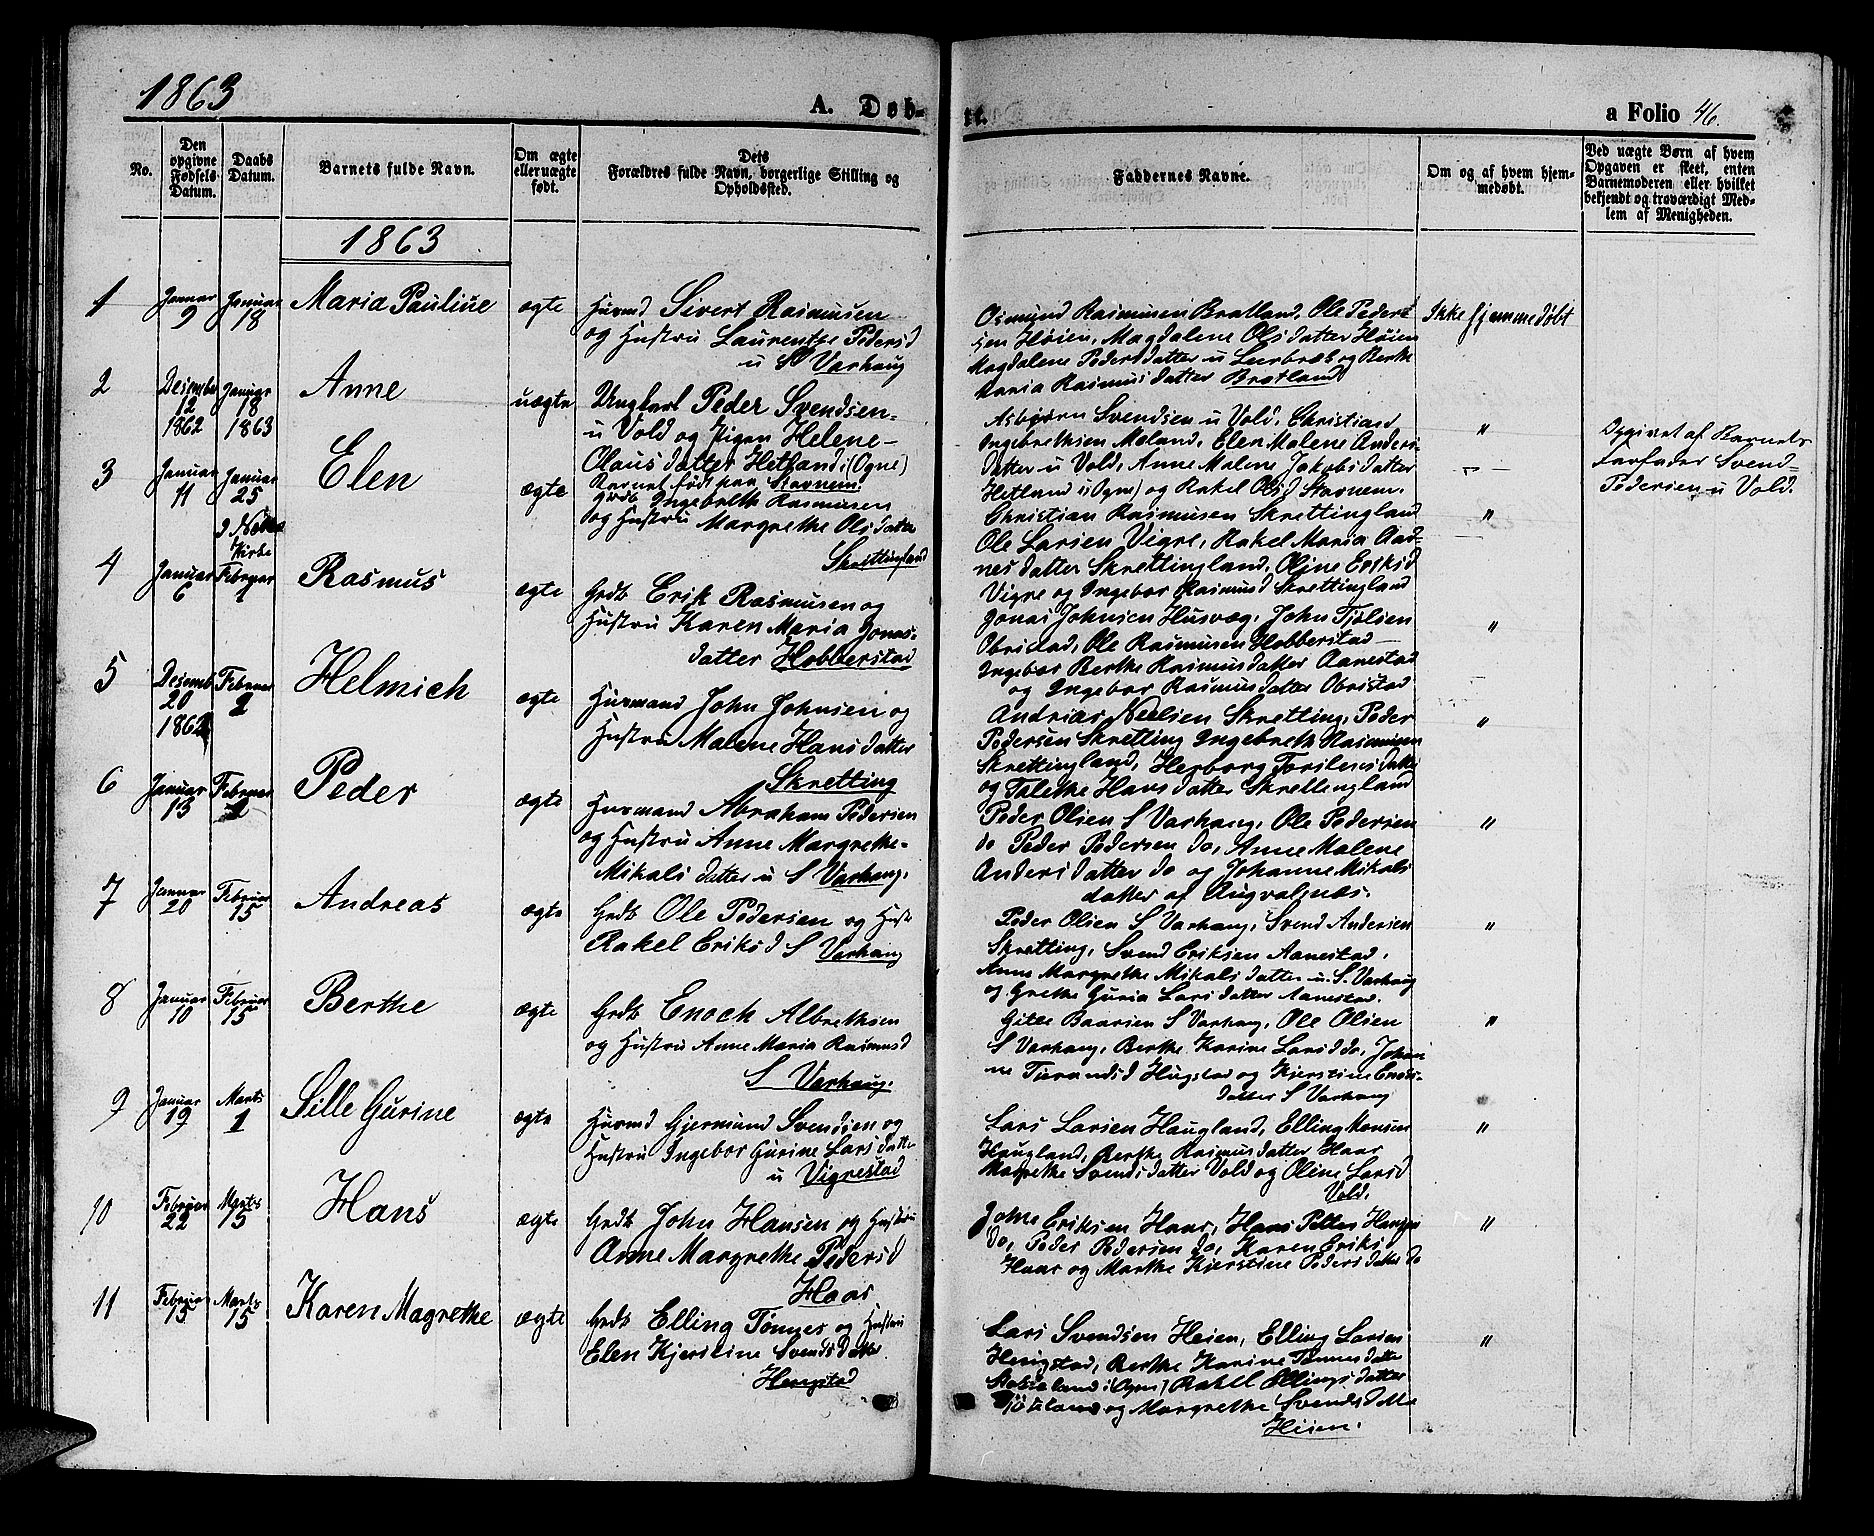 1863
A. Døb-
te.
a Folio 46.
No.
Den opgivne Fødsels Datum.
Daabs Datum.
Barnets fulde Navn.
Om ægte eller uægte født.
Dets Forældres fulde Navn, borgerlige Stilling og Opholdssted.
Faddernes Navne.
Om og af hvem hjemmedøbt.
Ved uægte Børn af hvem Opgaven er skeet, enten Barnemoderen eller hvilket bekjendt og troværdigt Medlem af Menigheden.
1863
1
Januar 9
Januar 18
Maria Pauline
ægte
Huusmd Sivert Rasmusen
og Hustru Laurentse Pedersd
u S Varhaug
Osmund Rasmusen Bratland, Ole Peder
sen Høien, Magdalene Olsdatter Høien
Magdalene Pedersdatter u Leerbræk og Berthe
Maria Rasmusdatter Bratland
Ikke hjemmedøbt
2
Desember 12 1862
Januar 18 1863
Anne
uægte
Ungkarl Peder Svendsen
u Vold og Pigen Helene
Olausdatter Hetland i (Ogne)
Barnet født paa Stavnem
Asbjørn Svendsen u Vold, Christian
Ingebrethsen Moland, Elen Malene Anders
datter u Vold, Anne Malene Jakobsdatter
Hetland i (Ogne) og Rakel Olsd Stavnem.
"
Opgivet af Barnets
Farfader Svend
Pedersen u Vold.
3
Januar 11
Januar 25
I Nerbø Kirke
Elen
ægte
Grdb Ingebrett Rasmusen
og Hustru Margrethe Olsdatter
Skrettingland
Christian Rasmusen Skrettingland
Ole Larsen Vigre, Rakel Maria Aad-
nesdatter Skrettingland, Oline Eriksd
Vigre og Ingebor Rasmusd Skrettingland
"
4
Januar 6
Februar 1
Rasmus
ægte
Grdb Erik Rasmusen og
Hustru Karen Maria Jonas-
datter Hobberstad
Jonas Johnsen Husvæg, John Tjølsen
Obristad, Ole Rasmusen Hobberstad
Ingebor Berthe Rasmusdatter Aanestad
og Ingebor Rasmusdatter Obristad
"
5
Desemb 20 1862
Februar 2
Helmich
ægte
Huusmand John Johnsen og
Hustru Malene Hansdatter
Skretting
Andrias Neelsen Skretting, Peder
Pedersen Skretting Ingebreth Rasmusen
Skrettingland, Herborg Torsteinsdatter
og Talethe Hansdatter Skrettingland
"
6
Januar 13
Februar 1
Peder
ægte
Huusmand Abraham Pedersen
og Hustru Anne Margrethe
Mikalsdatter u S Varhaug.
Peder Olsen S Varhaug, Ole Pedersen
do Peder Pedersen do, Anne Malene
Andersdatter do og Johanne Mikals
datter af Augvalnæs.
"
7
Januar 20
Februar 15
Andreas
ægte
Grdb Ole Pedersen og Hust
Rakel Eriksd S Varhaug
Peder Olsen S Varhaug, Svend Andersen
Skretting, Svend Eriksen Aanestad,
Anne Margrethe Mikalsdatter u. S. Varhaug
og Grethe Guria Larsdatter Aanestad.
"
8
Januar 10
Februar 15
Berthe
ægte
Grdb Enoch Albrethsen
og Hustru Anne Maria Rasmusd
S Varhaug.
Gitle Baarsen S Varhaug, Ole Olsen
S Varhaug, Berthe Karine Larsd do, Johan
ne Tørandsd Hugstad og Kjerstine Enoks-
datter S Varhaug
"
9
Januar 19
Marts 1
Sille Gurine
ægte
Huusmd Gjermund Svendsen og
Hustru Ingebor Gurine Larsdatter
u Vigrestad
Lars Larsen Haugland, Elling Monsen
Haugland, Berthe Rasmusdatter Haar
Margrethe Svendsdatter Vold og Oline Larsd
Vold.
"
10
Februar 22
Marts 15
Hans
ægte
Grdb John Hansen og Hustru
Anne Margrethe Pedersd
Haar
John Eriksen Haar, Hans Petter Hansen
do, Peder Pedersen do, Karen Eriksd
Haar og Marthe Kjerstine Pedersdatter do
"
11
Februar 15
Marts 15
Karen Magrethe
ægte
Grdb Elling Tønnes og Hustru
Elen Kjerstine Svendsdatter
Hengstad
Lars Svendsen Heien, Elling Larsen
Hengstad, Berthe Karine Tønnesdatter
i (Ogne) Rakel Ellingsdatter
og Margrethe Svendsdatter
Heien.
"